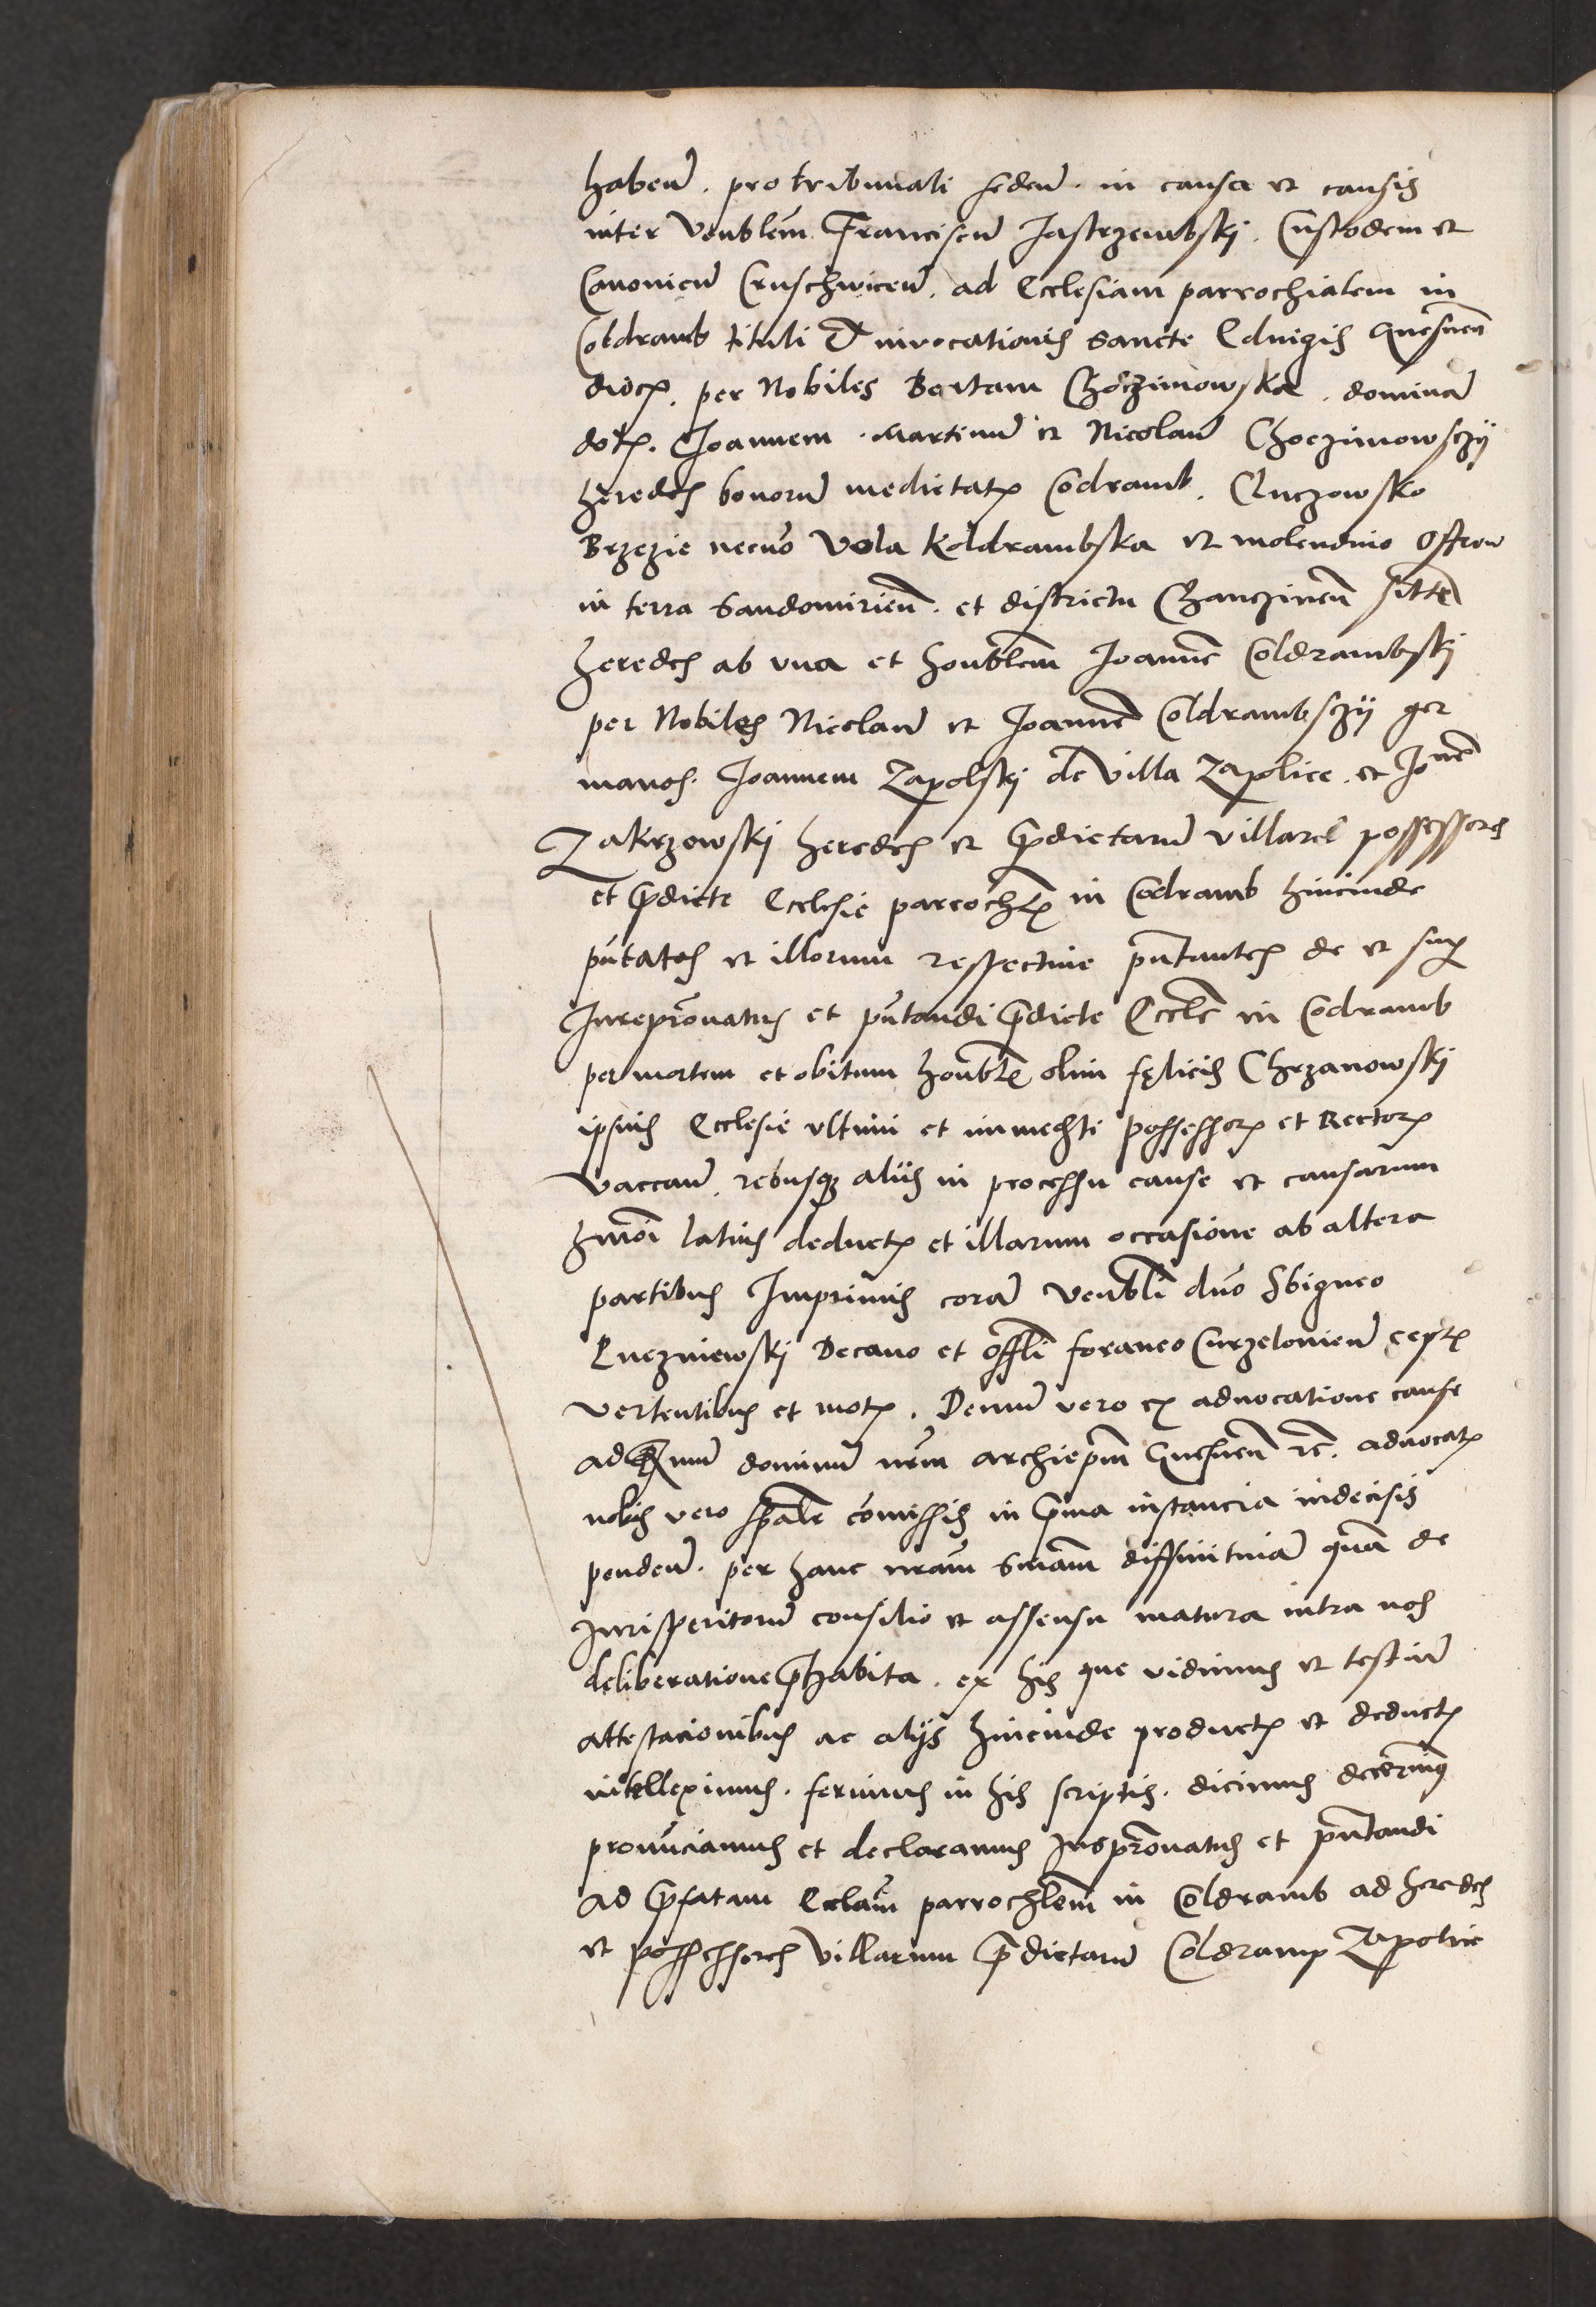 habeñ. pro tribunali sedeñ. in causa et causis
inter Venblem Franciscū Jastrzembskj. Custodem et
Canonicū Cruschwiceñ. ad Ecclesiam parrochialem in
Coldramb tituli et invocationis Sancte Eduigis Gnesneñ
dioc. per Nobiles Bartam Choczimowska. dominā
dot. Joannem. Martinū et Nicolaū Choczimowsczij
heredes bonorū medietat Codramb. Cluczowsko
Brzezie necnō Vola Koldrambska et molendino Ostrow
in terra Sandomirieñ. et districtu Chanczineñ sitt
heredes ab vna et honblem Joannē Coldrambskj
per Nobiles Nicolaū et Joannē Coldrambsczij ger
manos. Joannem Zapolskj de Villa Zapolice. et Jonē
Zakrzowskj heredes et p̄dictarū villarū possessores
et p̄dicte Ecclesie parroch in Codramb hincinde
p̄ntatos et illorum respectiue p̄ntantes de et sup
Jurepr̄onatus et p̄ntandi p̄dicte Eccle in Codramb
per mortem et obitum honbl olim felicis Chrzanowskj
ipsius Ecclesie vltimi et immedti possessor et Rector
vaccañ. rebusq̄ aliis in processu cause et causarum
hmōi latius deduct et illarum occasione ab altera
partibus Imprimis corā Venbli dn̄o Sbigneo
Luczniewskj Decano et offli foraneo Curzelonieñ cept
vertentibus et mot. Demū vero ex aduocatione cause
ad R̄mū dominū nr̄m archiepm̄ Gnesneñ etc. aduocat
nobis vero sp̄ale cōmissis in p̄ma instancia indecisis
pendeñ. per hanc nr̄am Sniam diffinitiuā quā de
Jurisperitorū consilio et assensu matura intra nos
deliberatione p̄habita. ex his que vidimus et testiū
attestacionibus ac alijs hincinde product et deduct
intelleximus. ferimus in his scriptis. dicimus decernimꝰ
pronūciamus et declaramus Juspr̄onatus et p̄ntandi
ad p̄fatam Ecclam parrochlem in Coldramb ad heredes
et possessores villarum p̄dictarū Coldramp Zapolice